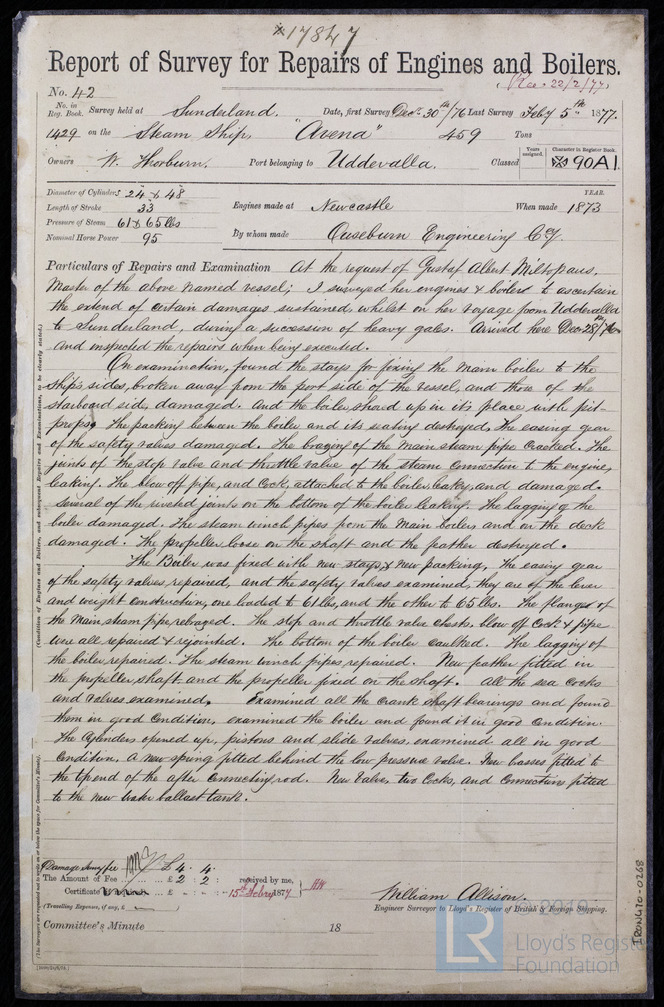 *17847
Report of Survey for Repairs of Engines and Boilers.
No. 42
Rec. 22/2/77
No. in Reg. Book. Survey held at Sunderland. Date, first Survey Decr 30th/76 Last Survey Feby 5th 1877.
1429 on the Steam Ship, "Avena" 459 Tons
Owners W. Thorburn. Port belonging to Uddevalla. Classed Years assigned. Character in Register Book. 90A1.
Diameter of Cylinders 24 & 48
Length of Stroke 33
Pressure of Steam 61 & 65 lbs
Nominal Horse Power 95
Engines made at Newcastle When made YEAR. 1873
By whom made Ouseburn Engineering Coy.
Particulars of Repairs and Examination At the request of Gustaf Albert
Master of the above named vessel; I surveyed her engines & boilers to ascertain
the extend of certain damages sustained, whilst on her voyage from Uddevalla
to Sunderland, during a succession of heavy gales. Arrived here Dec 28th/76
and inspected the repairs when being executed.
On examination, found the stays for fixing the main boiler to the
ship's sides, broken away from the port side of the vessel, and those of the
starboard side, damaged. And the boiler shored up in its place with pit-
props. The packing between the boiler and its seating destroyed, the easing gear
of the safety valves damaged. The brazing of the main steam pipe cracked. The
joints of the stop valve and throttle valve of the steam connection to the engine,
leaking. The blow off pipe, and cock, attached to the boiler, leaky, and damaged.
Several of the riveted joints on the bottom of the boiler leaking. The lagging of the
boiler damaged. The steam winch pipes from the main boilers and on the deck
damaged. The propeller loose on the shaft and the feather destroyed.
The Boiler was fixed with new stays & new packing, the easing gear
of the safety valves, repaired, and the safety valves examined, they are of the lever
and weight construction, one loaded to 61 lbs, and the other to 65 lbs. The flanges of
the main steam pipe rebrazed. The stop and throttle valve chests, blow off cock & pipe
were all repaired & rejointed. The bottom of the boiler caulked. The lagging of
the boiler repaired. The steam winch pipes repaired. New feather fitted in
the propeller shaft and the propeller fixed on the shaft. All the sea cocks
and valves examined. Examined all the crank shaft bearings and found
them in good condition, examined the boiler and found it in good condition.
The Cylenders opened up, pistons and slide valves, examined all in good
condition, a new spring fitted behind the low pressure valve. New brasses fitted to
the top end of the after connecting rod. New valve, two cocks, and connections fitted
to the new water ballast tank.
(Condition of Engines and Boilers, and subsequent Repairs and Examinations, to be clearly stated.)
(The Surveyors are requested not to write on or below the space for Committee's Minute).
Damage Survey fee £ 4 . 4 .
The Amount of Fee ... £ 2 : 2 : received by me,
Certificate ... £ - : - : - 15th Febry 1877
(Travelling Expenses, if any, £ )
William Allison.
Engineer Surveyor to Lloyd's Register of British & Foreign Shipping.
Committee's Minute 18
IRON410-0268
LR
© 2019
Lloyd's Register
Foundation